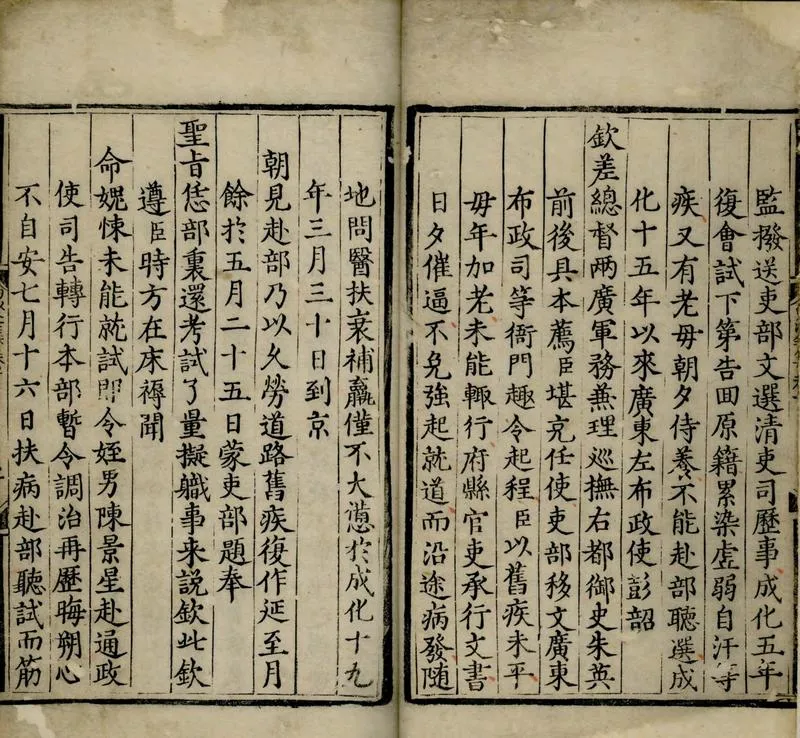 監撥送吏部文選清吏司歷事成化五年
復會試下第告囬原籍累染虛弱自汗等
疾又有老毋朝夕侍養不能赴部聽選成
化十五年以來廣東左布政使彭韶
欽差總督兩廣軍務兼理巡撫右都御史朱英
前後具本薦臣堪充任使吏部移文廣東
布政司等衙門趣令起程臣以舊疾未平
毋年加老未能輒行府縣官吏承行文書
日夕催逼不免強起就道而沿途病發隨
地問醫扶衰補羸僅不大憊於成化十九
年三月三十日到京
朝見赴部乃以久勞道路舊疾復作延至月
餘於五月二十五日蒙吏部題奉
聖旨恁部裏還考試了量擬職事来說欽此欽
遵臣時方在床褥聞
命媿悚未能就試即令姪男陳景星赴通政
使司告轉行本部暫令調治再歷晦朔心
不自安七月十六日扶病赴部聽試而筋